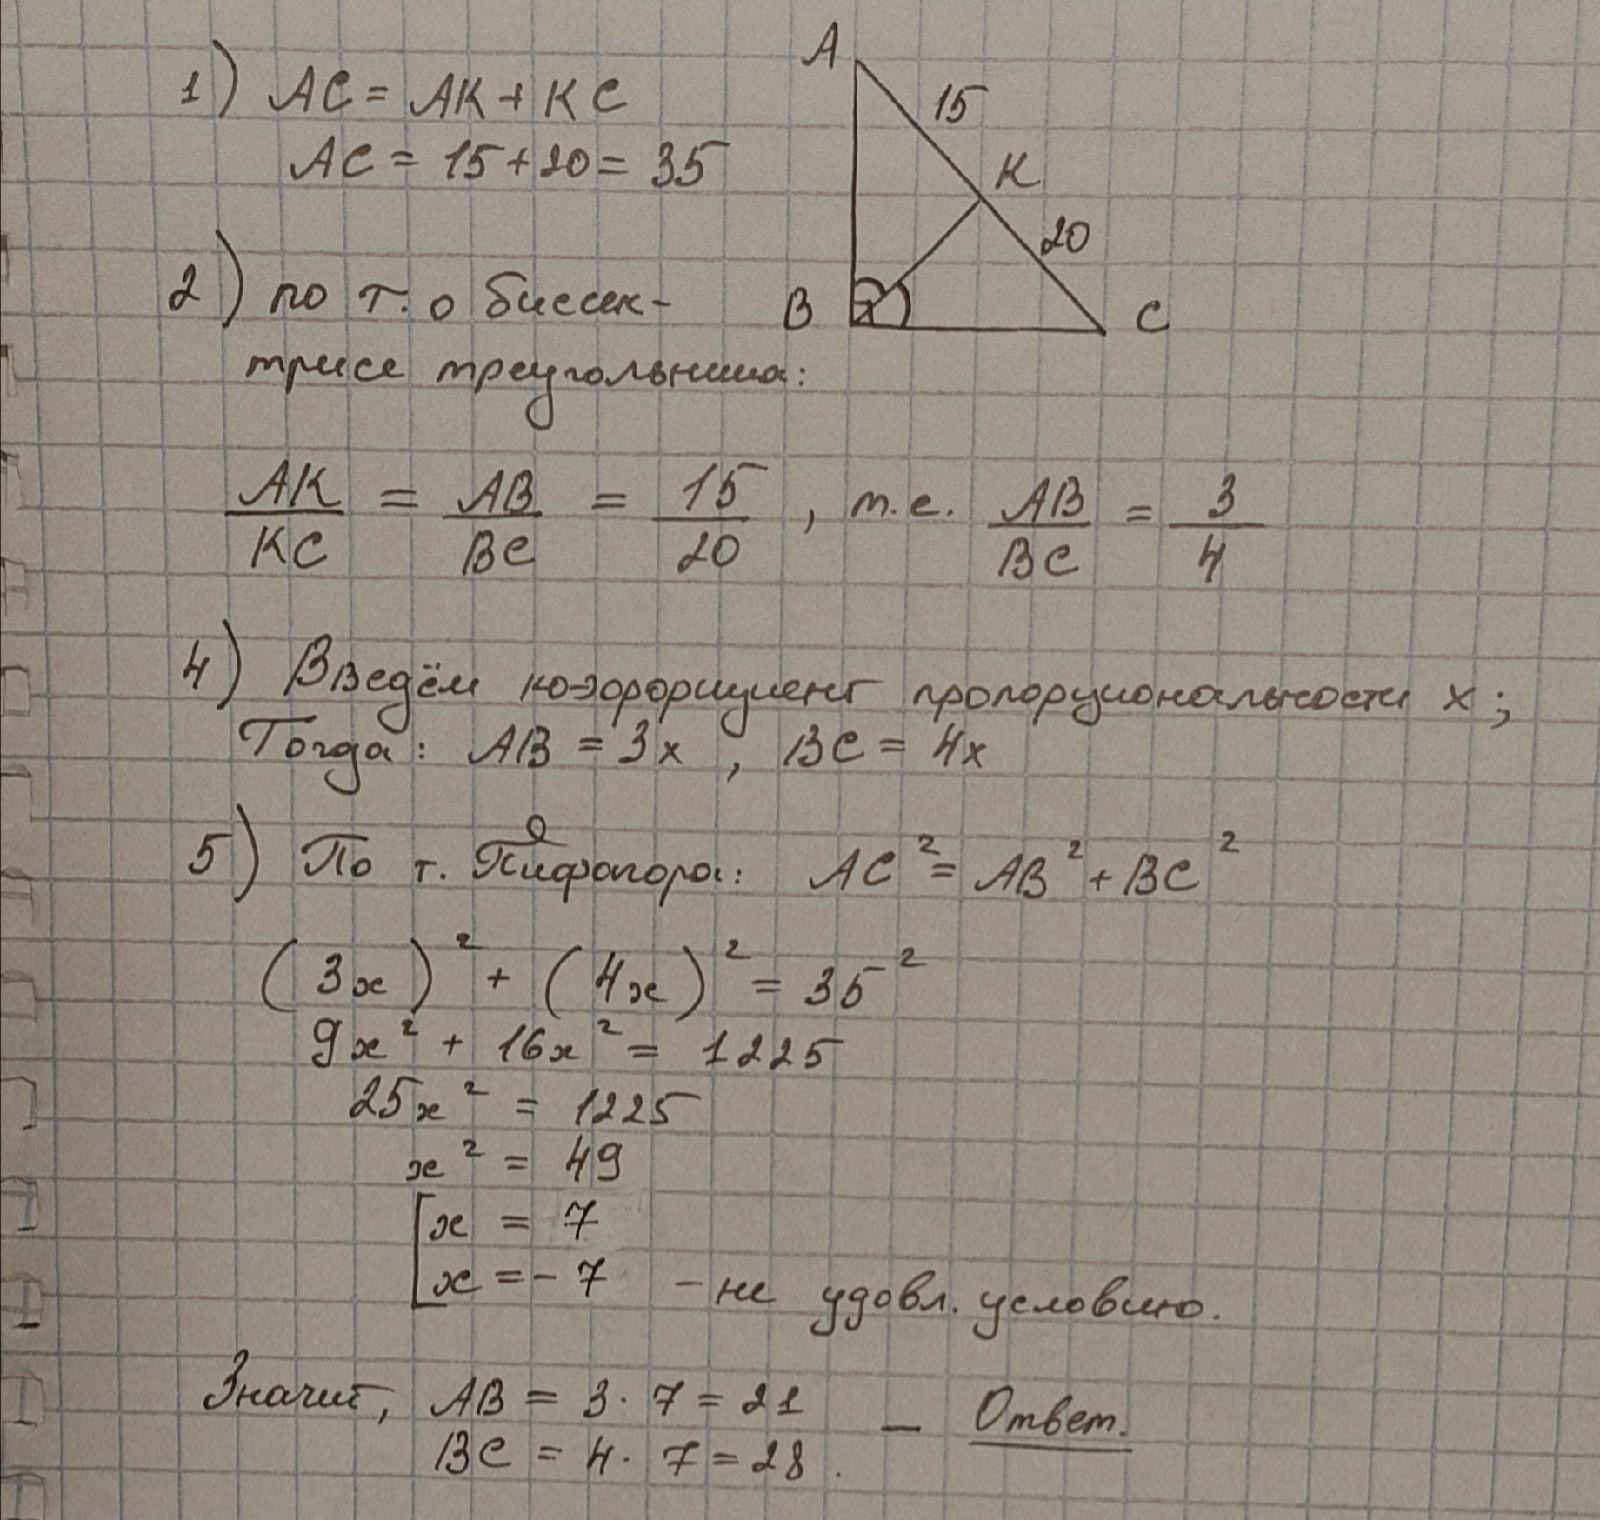 1) AC = AK + KC
AC = 15 + 20 = 35
A
15
K
20
B
C
2) по т. о биссек-
трисе треугольника:
AK/KC = AB/BC = 15/20, т.е. AB/BC = 3/4
4) Введём коэффициент пропорциональности x;
Тогда: AB = 3x, BC = 4x
5) По т. Пифагора: AC² = AB² + BC²
(3x)² + (4x)² = 35²
9x² + 16x² = 1225
25x² = 1225
x² = 49
[x = 7
[x = -7 - не удовл. условию.
Значит, AB = 3 · 7 = 21
BC = 4 · 7 = 28. — Ответ.